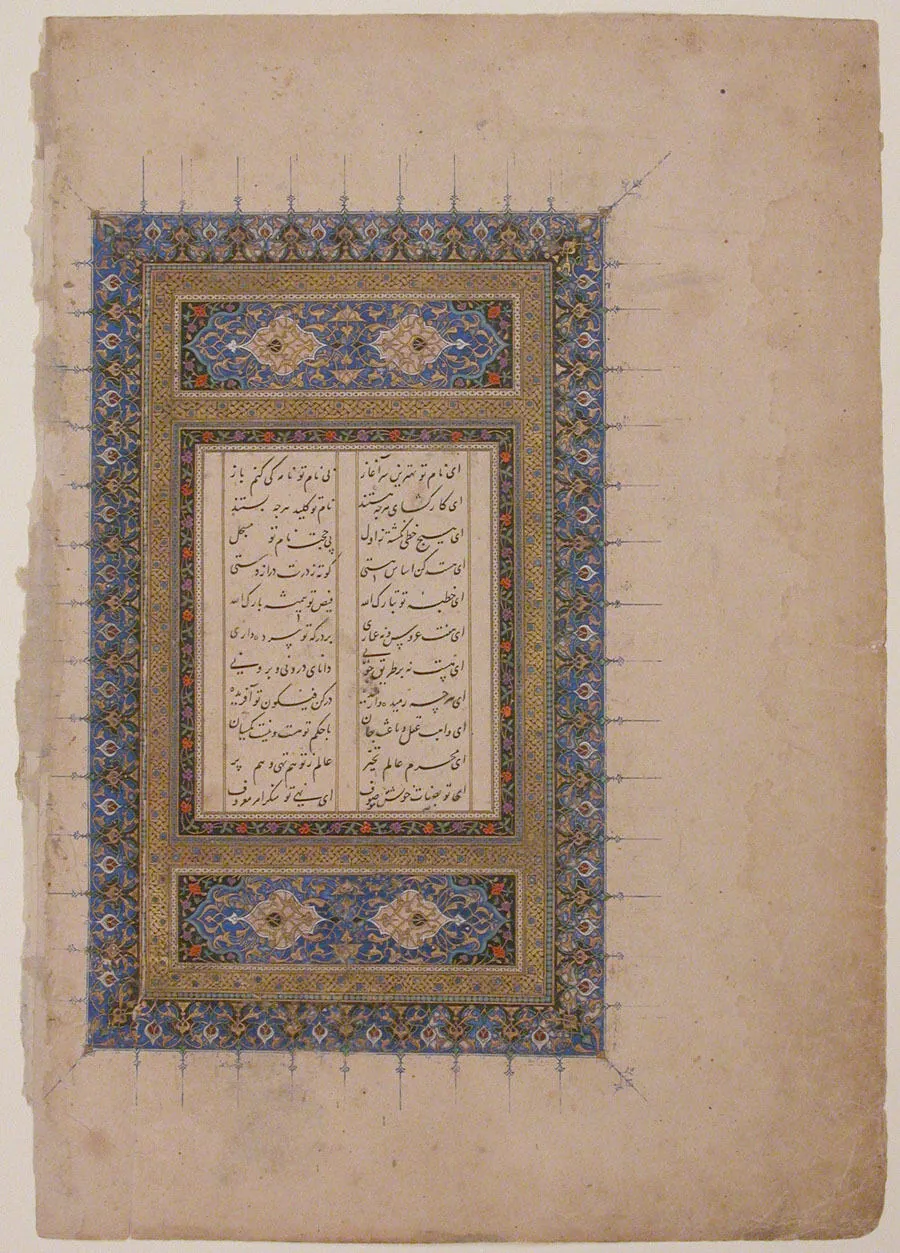 ای نام تو بهترین سرآغاز بی نام تو نامه کی کنم باز
ای کارگشای هرچه هستند نام تو کلید هرچه بستند
ای هیچ خطی نگشته ز اول بی حجت نام تو مسجل
ای هست کن اساس هستی کوته ز درت درازدستی
ای خطبه تو تبارک الله فیض تو همیشه بارک الله
ای هفت عروس نه عماری بر درگه تو بپرده داری
ای نیست نه بر طریق چونی دانای درونی و برونی
ای هرچه رمیده در کن فیکون تو آفریده
ای واهب عقل و باعث جان با حکم تو هست و نیست یکسان
ای محرم عالم تحیر عالم ز تو هم تهی و هم پر
ای تو بصفات خویش موصوف ای نهی تو منکر امر معروف